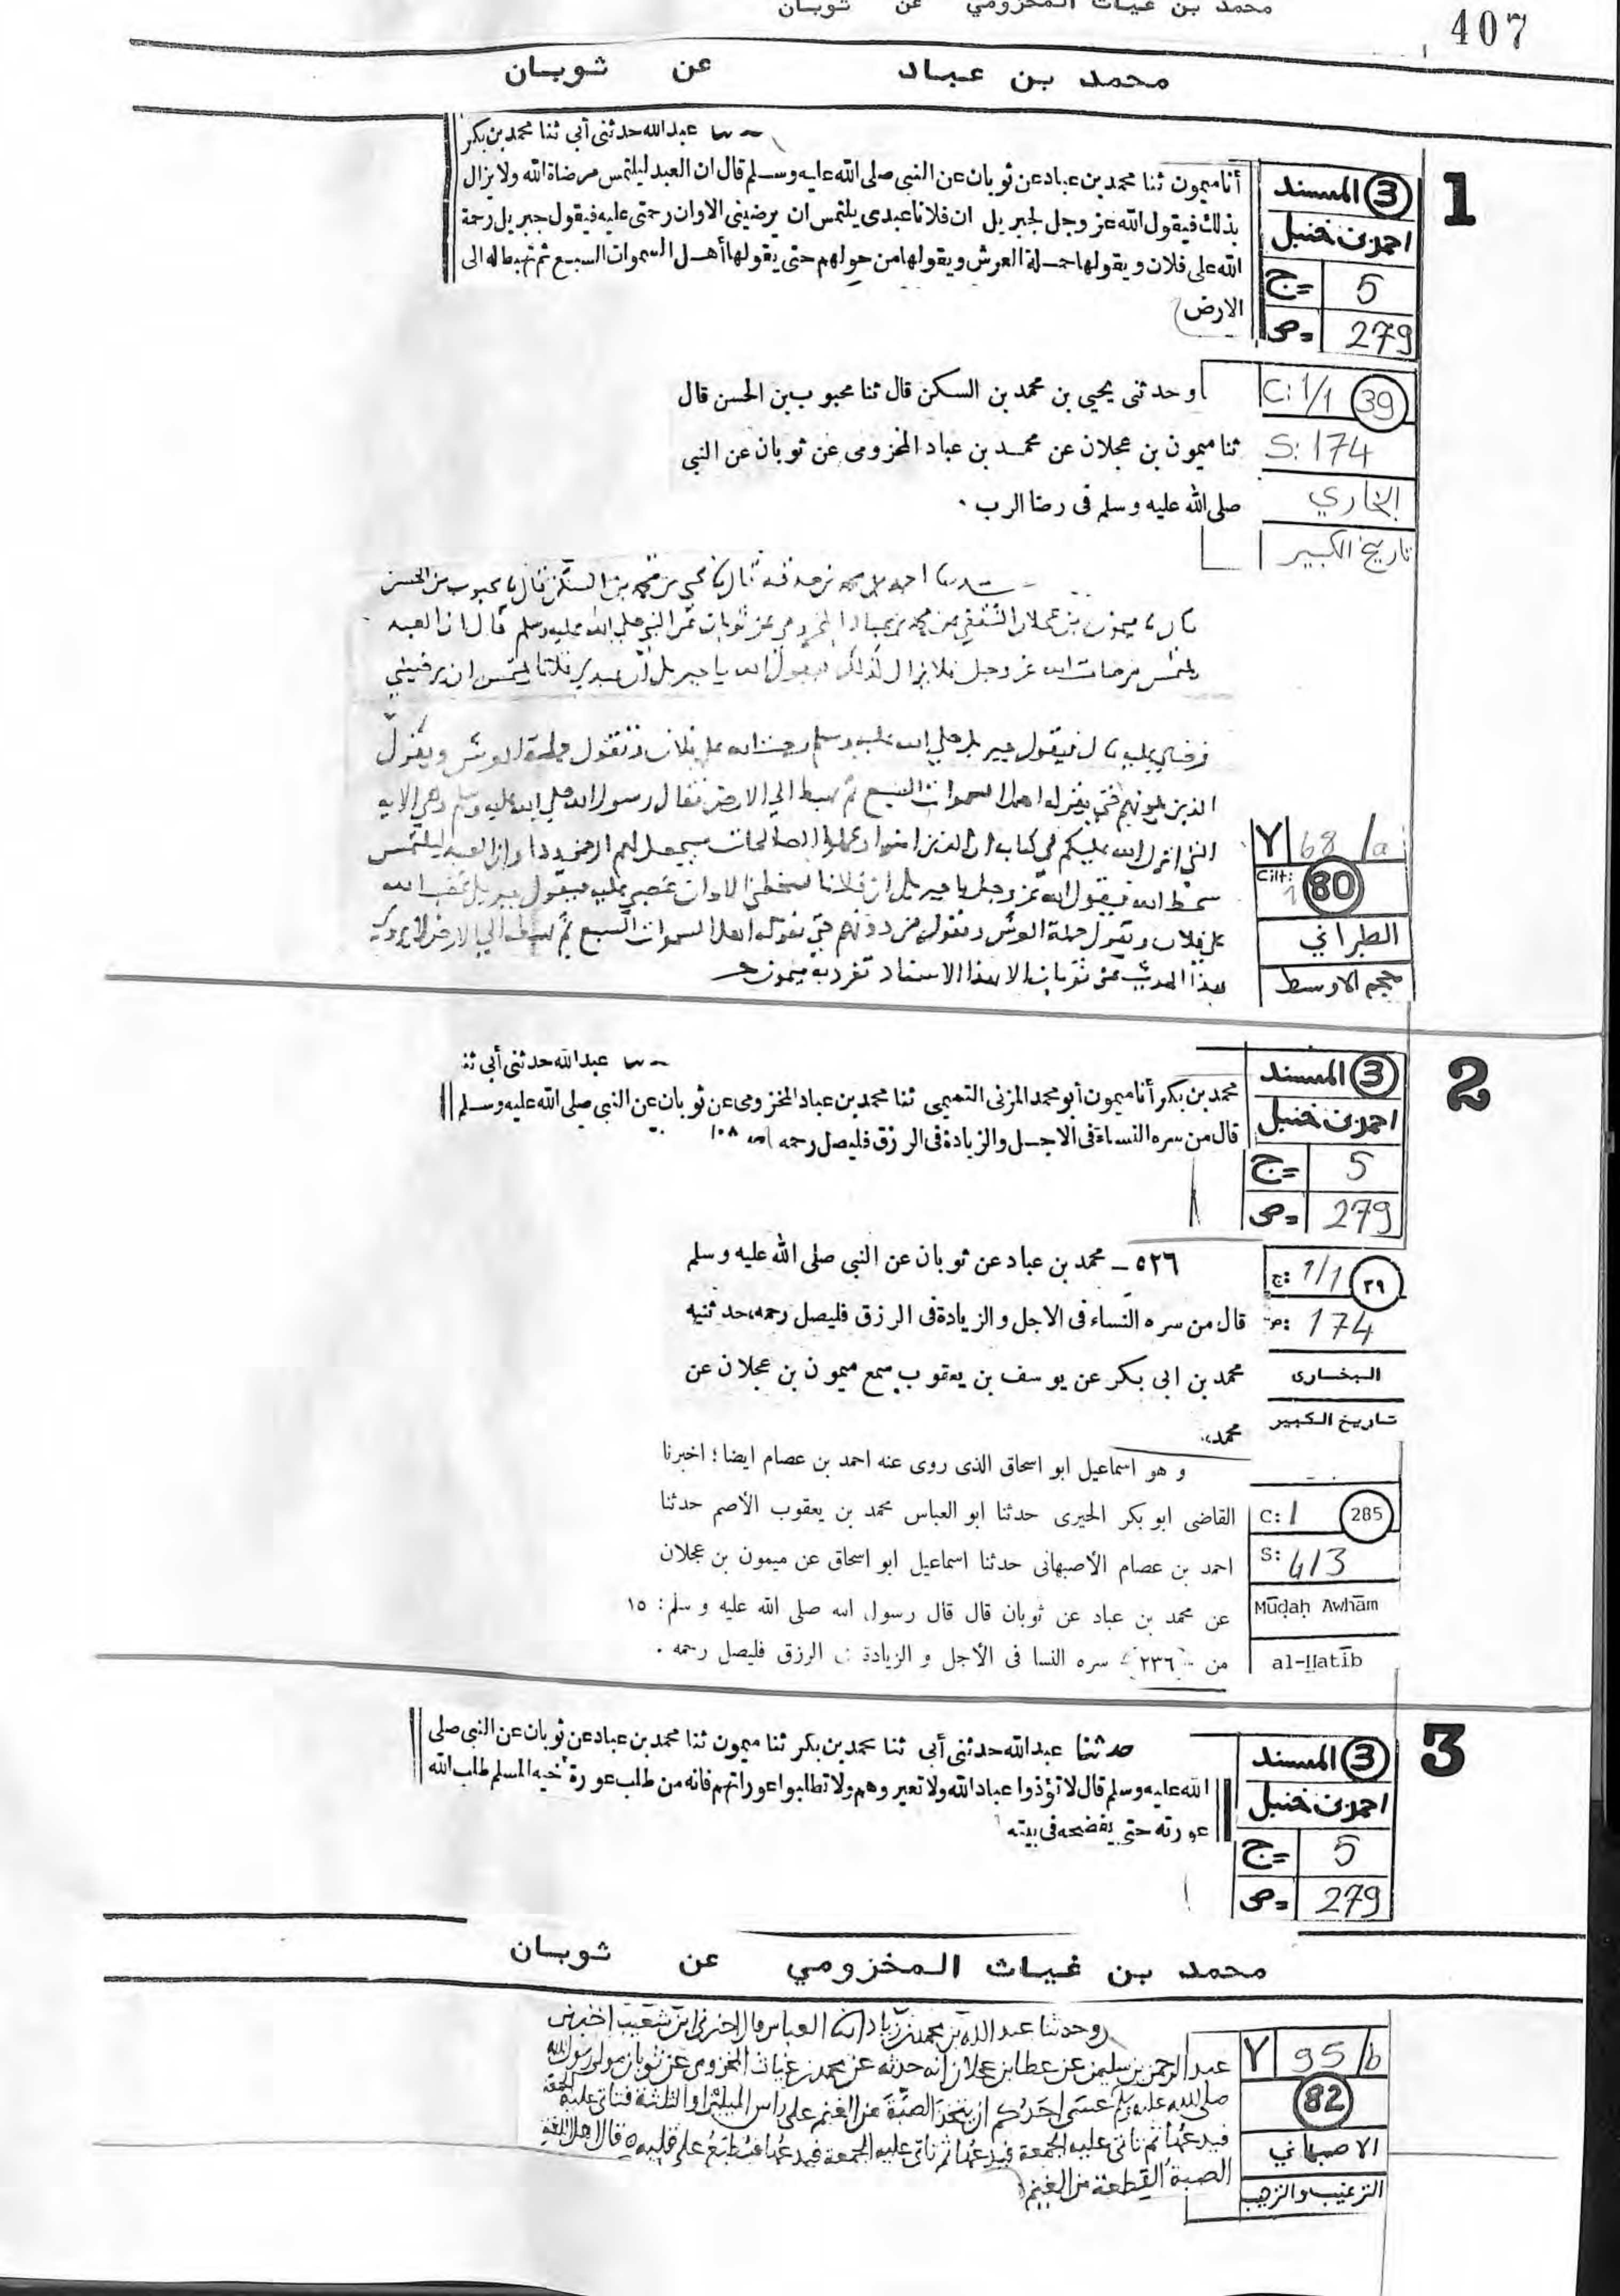 407
محمد بن غياث المخزومي عن ثوبان
محمد بن عباد عن ثوبان
1
3 المسند
احمد بن حنبل
ج= 5
ص= 279
عبدالله حدثنى أبى ثنا محمد بن بكر
أنا ميمون ثنا محمد بن عباد عن ثوبان عن النبى صلى الله عليه وسلم قال ان العبد ليلتمس مرضاة الله ولا يزال
بذلك فيقول الله عز وجل لجبريل ان فلانا عبدى يلتمس ان يرضينى الا وان رحمتى عليه فيقول جبريل رحمة
الله على فلان ويقولها حملة العرش ويقولها من حولهم حتى يقولها أهل السموات السبع ثم تهبط له الى
الارض
C: 1/1 39
S: 174
البخاري
تاريخ الكبير
وحدثنى يحيى بن محمد بن السكن قال ثنا محبوب بن الحسن قال
ثنا ميمون بن عجلان عن محمد بن عباد المخزومى عن ثوبان عن النبى
صلى الله عليه وسلم فى رضا الرب .
Y 68/a
Cilt: 1 80
الطبراني
معجم الاوسط
محمد بن السكن قال نا محبوب بن الحسن
قال نا ميمون بن عجلان الثقفي عن محمد بن عباد المخزومي عن ثوبان عن النبي صلى الله عليه وسلم قال ان العبد
يلتمس مرضات الله عز وجل فلا يزال كذلك فيقول الله يا جبريل ان عبدي فلانا يلتمس ان يرضيني
فرضاي عليه قال فيقول جبريل صلى الله عليه وسلم رحمة الله على فلان وتقول حملة العرش ويقول
الذين يلونهم حتى يقوله اهل السموات السبع ثم يهبط الى الارض فقال رسول الله صلى الله عليه وسلم وهي الاية
التي انزل الله عليكم في كتابه ان الذين امنوا وعملوا الصالحات سيجعل لهم الرحمن ودا وان العبد ليلتمس
سخط الله فيقول الله عز وجل يا جبريل ان فلانا يسخطني الا وان غضبي عليه فيقول جبريل غضب الله
على فلان وتقول حملة العرش ويقول من دونهم حتى يقوله اهل السموات السبع ثم يهبط الى الارض لا يروى
هذا الحديث عن ثوبان الا بهذا الاسناد تفرد به ميمون
2
3 المسند
احمد بن حنبل
ج= 5
ص= 279
عبدالله حدثنى أبى ثنا
محمد بن بكر أنا ميمون أبو محمد المزنى التميمى ثنا محمد بن عباد المخزومى عن ثوبان عن النبى صلى الله عليه وسلم
قال من سره النساء فى الاجل والزيادة فى الرزق فليصل رحمه ١٠٨
ج: 1/1 ٣٩
ص: 174
البخارى
تاريخ الكبير
٥٢٦ – محمد بن عباد عن ثوبان عن النبى صلى الله عليه وسلم
قال من سره النساء فى الاجل والزيادة فى الرزق فليصل رحمه، حدثنيه
محمد بن ابى بكر عن يوسف بن يعقوب سمع ميمون بن عجلان عن
محمد،
C: 1 285
S: 413
Mūḍaḥ Awhām
al-Ḫatīb
و هو اسماعيل ابو اسحاق الذى روى عنه احمد بن عصام ايضا؛ اخبرنا
القاضى ابو بكر الحيرى حدثنا ابو العباس محمد بن يعقوب الأصم حدثنا
احمد بن عصام الأصبهانى حدثنا اسماعيل ابو اسحاق عن ميمون بن عجلان
عن محمد بن عباد عن ثوبان قال قال رسول الله صلى الله عليه و سلم: ١٥
من ٢٣٦ سره النسا فى الأجل و الزيادة فى الرزق فليصل رحمه .
3
3 المسند
احمد بن حنبل
ج= 5
ص= 279
حدثنا عبدالله حدثنى أبى ثنا محمد بن بكر ثنا ميمون ثنا محمد بن عباد عن ثوبان عن النبى صلى
الله عليه وسلم قال لا تؤذوا عباد الله ولا تعيروهم ولا تطلبوا عوراتهم فانه من طلب عورة أخيه المسلم طلب الله
عورته حتى يفضحه فى بيته
محمد بن غياث المخزومي عن ثوبان
Y 95/b
82
الاصبهاني
الترغيب والترهيب
وحدثنا عبد الله بن محمد بن زياد انا العباس قال اخبرني ابن شعيب اخبرني
عبد الرحمن بن سليمن عن عطا بن عجلان انه حدثه عن محمد بن غياث المخزومي عن ثوبان مولى رسول الله
صلى الله عليه وسلم عسى احدكم ان يتخذ الصبة من الغنم على راس الميلين او الثلثة فتاتي عليه الجمعة
فيدعها ثم تاتي عليه الجمعة فيدعها ثم تاتي عليه الجمعة فيدعها فيطبع على قلبه قال اهل اللغة
الصبة القطعة من الغنم